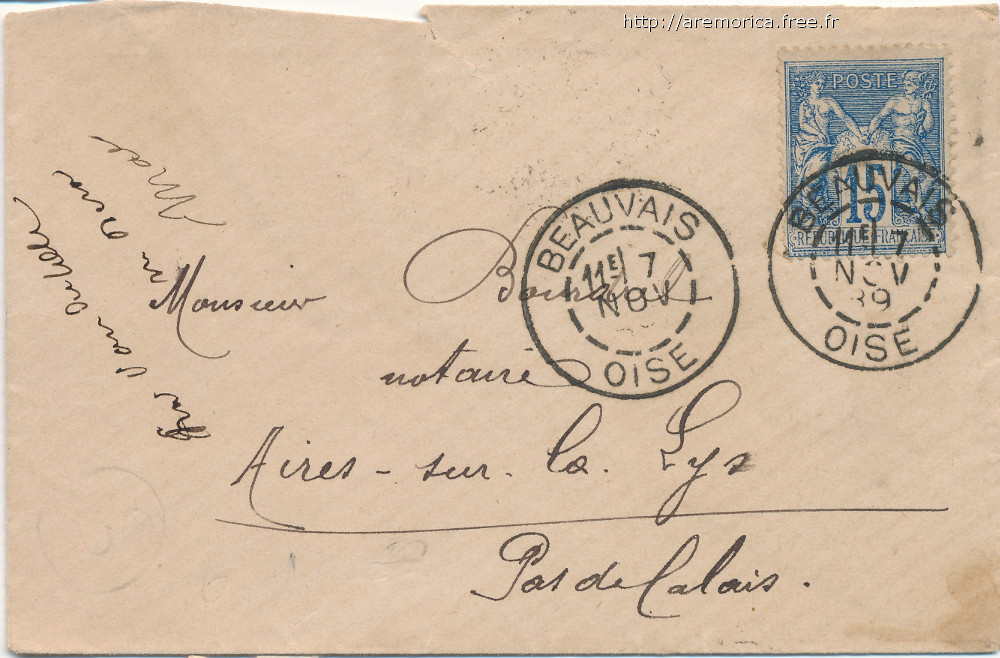 http://aremorica.free.fr
POSTE
15
REPUBLIQUE FRANCAISE
BEAUVAIS
11E 7
NOV
89
OISE
BEAUVAIS
11E 7
NOV
OISE
Monsieur
notaire
Aires-sur-la-Lys
Pas de Calais.